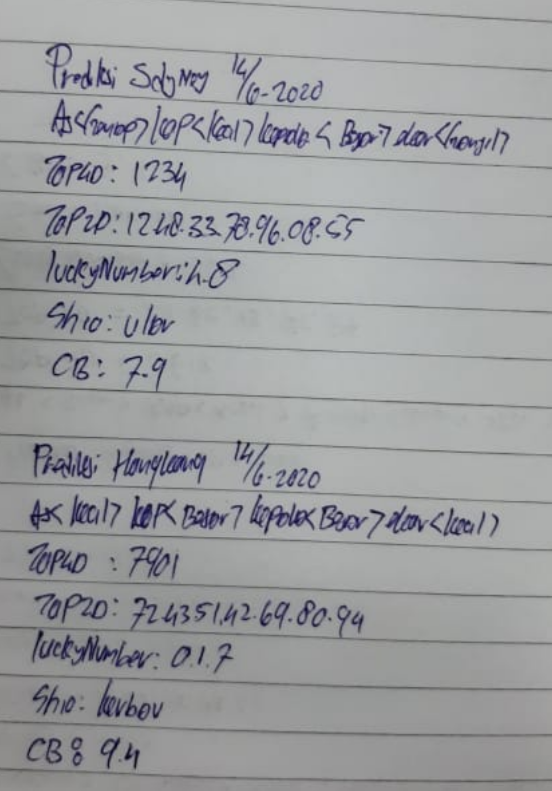 Prediksi Sdyney 14/6-2020
As<Genap> kop<kecil> kepala < Besar> ekor<Ganjil>
Top4D: 1234
Top2D: 12.48.33.78.96.08.55
luckyNumber: 4.8
Shio: ular
CB: 7.9
Prediksi Hongkong 14/6-2020
As< kecil> kop< Besar> kepala<Besar> ekor<kecil>
Top4D : 7901
Top2D: 72.43.51.42.69.80.94
luckyNumber: 0.1.7
Shio: kerbau
CB: 9.4